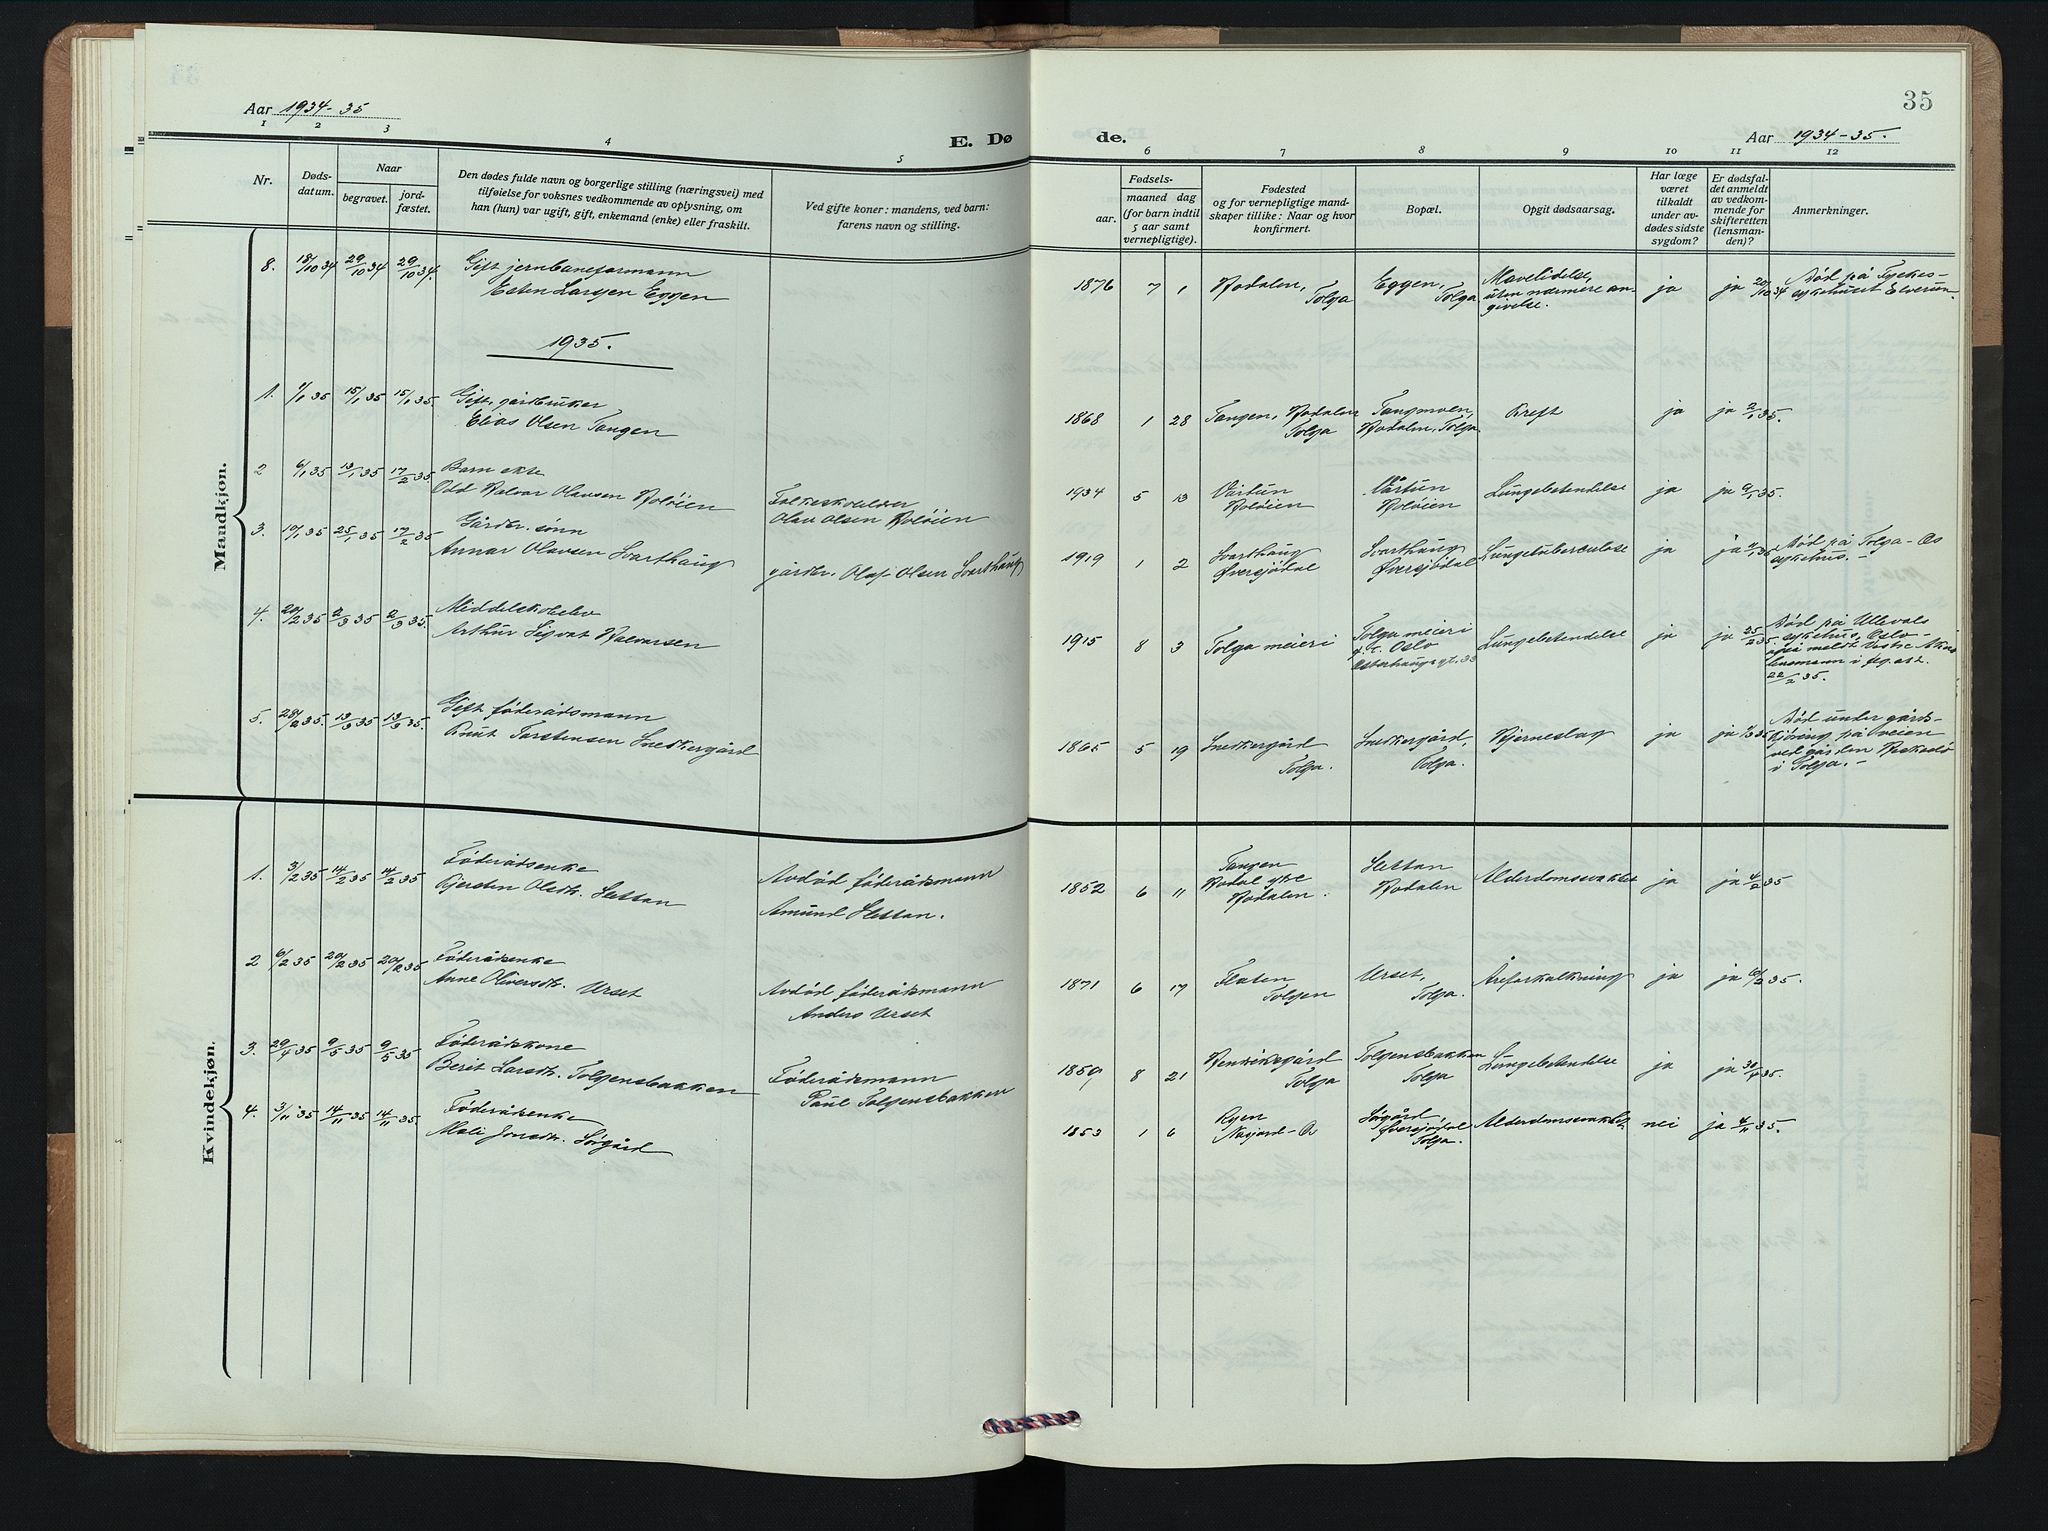 35
Aar 1934-35
E. Dø
de.
Aar 1934-35.
1 2 3 4 5 6 7 8 9 10 11 12
Nr.
Døds-
datum.
Naar
begravet.
jord-
fæstet.
Den dødes fulde navn og borgerlige stilling (næringsvei) med
tilføielse for voksnes vedkommende av oplysning, om
han (hun) var ugift, gift, enkemand (enke) eller fraskilt.
Ved gifte koner: mandens, ved barn:
farens navn og stilling.
Fødsels-
aar.
maaned dag
(for barn indtil
5 aar samt
vernepligtige).
Fødested
og for vernepligtige mand-
skaper tillike: Naar og hvor
konfirmert.
Bopæl.
Opgit dødsaarsag.
Har læge
været
tilkaldt
under av-
dødes sidste
sygdom?
Er dødsfal-
det anmeldt
av vedkom-
mende for
skifteretten
(lensman-
den)?
Anmerkninger.
Mandkjøn.
8. 18/10 34 29/10 34 29/10 34. Gift jernbaneformann
Esten Larsen Eggen
1876 7 1 Hodalen,
Tolga
Eggen,
Tolga
Mavelidelse,
uten nærmere an-
givelse.
ja ja 20/10 34
Død på Fyekes-
sykehuset Elverum.
1935.
1. 1/1 35 15/1 35 15/1 35. Gift, gårdbruker
Elias Olsen Tangen
1868 1 28 Tangen, Hodalen
Tolga
Tangmoen,
Hodalen, Tolga.
Kreft ja ja 2/1 35.
2 6/1 35 13/1 35 17/2 35 Barn ekte
Odd Halvar Olavsen Holøien
Folkeskolelær
Olav Olsen Holøien
1934 5 13 Vårtun
Holøien
Vårtun
Holøien
Lungebetendelse ja ja 9/1 35.
3. 10/1 35 25/1 35 17/2 35 Gårdbr. sønn
Annar Olavsen Svarthaug
gårdbr. Olaf Olsen Svarthaug
1919 1 2 Svarthaug
Øversjødal
Svarthaug
Øversjødal
Lungetuberculose ja ja 11/1 35
Død på Tolga-Os
sykehus. -
4. 20/2 35 2/3 35 2/3 35. Middelskoleelev
Arthur Sigvat Halvorsen
1915 8 3 Tolga meieri
Tolga meieri
p.t. Oslo
Osterhausgt. 33
Lungebetendelse ja ja 25/2 35.
Død på Ullevål
sykehus, Oslo -
også meldt Vestre Aker
lensmann i
22/2 35.
5. 28/2 35. 13/3 35 13/3 35. Gift føderådsmann
Knut Torstensen Snedkergård
1865 5 19 Snedkergård
Tolga.
Snedkergård,
Tolga.
Hjerneslag ja ja 1/3 35
Død under gårds-
kjøring på veien
ved gården
i Tolga. -
Kvindekjøn.
1. 3/2 35 14/2 35 14/2 35 Føderådsenke
Kjersten Olsdtr. Slettan
Avdød føderådsmann
Amund Slettan.
1852 6 11 Tangen
Hodal ytre
Hodalen.
Slettan
Hodalen
Alderdomssvakhet ja ja 4/2 35
2 6/2 35 20/2 35 20/2 35 Føderådsenke
Anne Oliversdtr. Urset
Avdød føderådsmann
Anders Urset
1871 6 17 Floten
Tolgen
Urset,
Tolga.
Åreforkalkning ja ja 10/2 35.
3. 29/4 35 9/5 35 9/5 35 Føderådskone
Berit Larsdtr. Tolgensbakken
Føderådsmann
Paul Tolgensbakken
1859 8 21 Henriksgård
Tolga
Tolgensbakken
Tolga
Lungebetendelse ja ja 30/4 35.
4. 3/11 35 14/11 35 14/11 35. Føderådsenke
Mali Jonsdtr. Sørgård
1853 1 6 Ryen
Nasjord-Os
Sørgård
Øversjødal
Tolga.
Alderdomssvakhet nei ja 4/11 35.